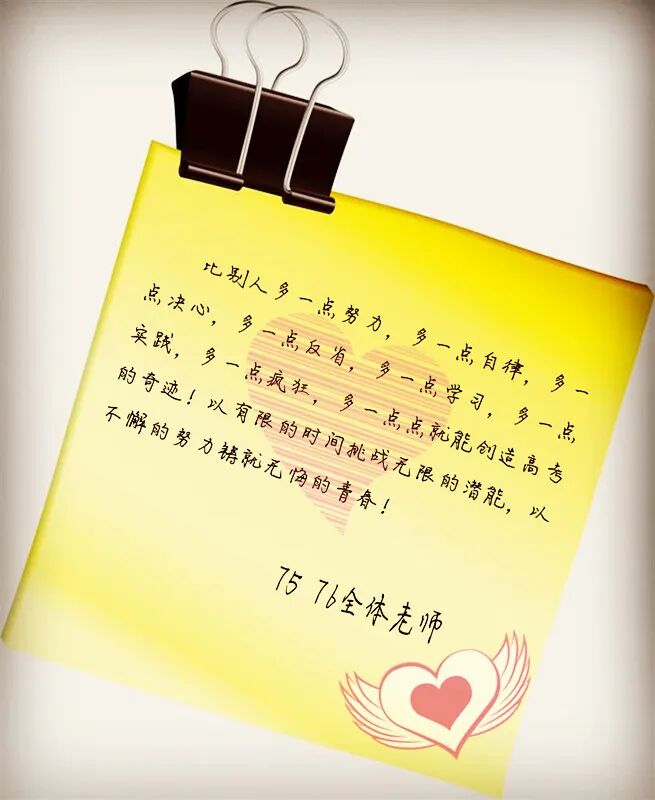 比别人多一点努力，多一点自律，多一
点决心，多一点反省，多一点学习，多一点
实践，多一点疯狂，多一点点就能创造高考
的奇迹！以有限的时间挑战无限的潜能，以
不懈的努力铸就无悔的青春！
75 76全体老师